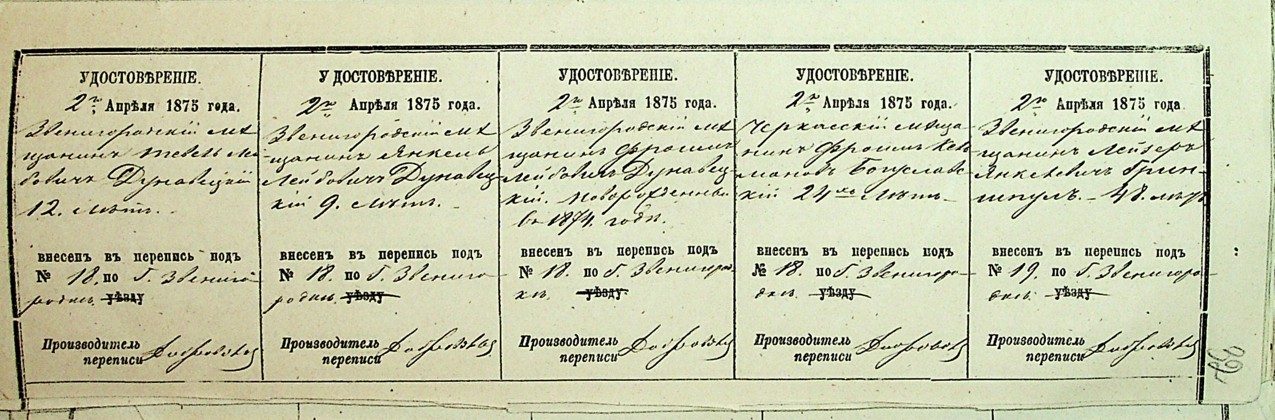 УДОСТОВѢРЕНІЕ.
2го Апрѣля 1875 года.
Звенигородскій мѣ
щанинъ Тевель Ле
бовичъ Дунавецкій
12. лѣтъ.
внесенъ въ перепись подъ
№ 18. по г. Звениго
родкѣ. уѣзду
Производитель
переписи
У ДОСТОВѢРЕНІЕ.
2го Апрѣля 1875 года.
Звенигородскій мѣ
щанинъ Янкель
Лейбовичъ Дунавец
кій 9. лѣтъ.
внесенъ въ перепись подъ
№ 18. по г. Звениго
родкѣ. уѣзду
Производитель
переписи
УДОСТОВѢРЕНІЕ.
2го Апрѣля 1875 года.
Звенигородскій мѣ
щанинъ Фроимъ
Лейбовичъ Дунавец
кій. Новорожденный
въ 1874. году.
внесенъ въ перепись подъ
№ 18. по г. Звенигород
кѣ. уѣзду.
Производитель
переписи
УДОСТОВѢРЕНІЕ.
2го Апрѣля 1875 года.
Черкасскій мѣща
нинъ Фроимъ
Богуславс
кій 24хъ лѣтъ
внесенъ въ перепись подъ
№ 18. по г. Звенигоро
дкѣ. уѣзду
Производитель
переписи
УДОСТОВѢРЕНІЕ.
2го Апрѣля 1875 года
Звенигородскій мѣ
щанинъ Лейзеръ
Янкелевичъ Грин
шпулъ. 48. лѣтъ
внесенъ въ перепись подъ
№ 19. по г. Звенигоро
дкѣ. уѣзду
Производитель
переписи